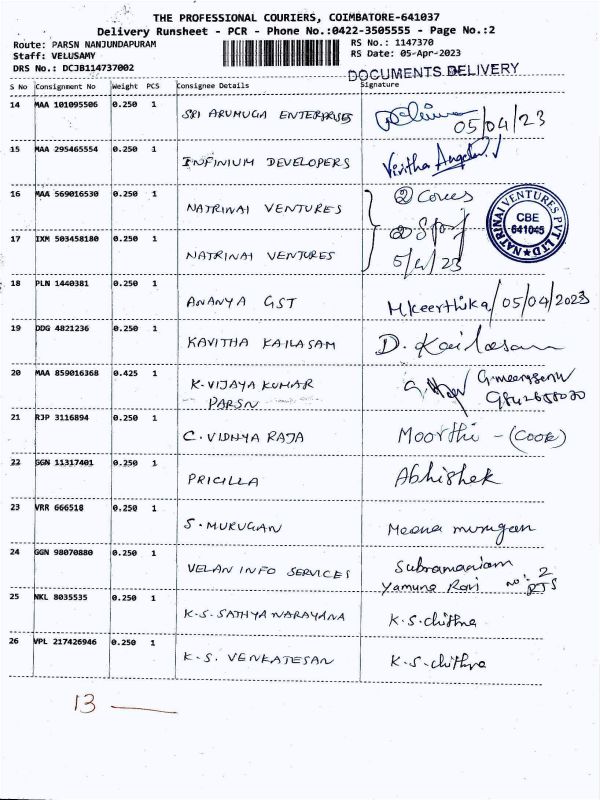 THE PROFESSIONAL COURIERS, COIMBATORE-641037
Delivery Runsheet - PCR - Phone No.:0422-3505555 - Page No.:2
Route: PARSN NANJUNDAPURAM RS No.: 1147370
Staff: VELUSAMY RS Date: 05-Apr-2023
DRS No.: DCJB114737002 DOCUMENTS DELIVERY
S No Consignment No Weight PCS Consignee Details Signature
14 MAA 101095506 0.250 1 SRI ARUMUGA ENTERPRISES 05/04/23
15 MAA 295465554 0.250 1 INFINIUM DEVELOPERS
16 MAA 569016530 0.250 1 NATRINAI VENTURES
NATRINAI VENTURES PVT LTD ★ CBE 641045
17 IXM 503458180 0.250 1 NATRINAI VENTURES 5/4/23
18 PLN 1440381 0.250 1 ANANYA GST M.Keerthika/05/04/2023
19 DDG 4821236 0.250 1 KAVITHA KAILASAM D. Kailasam
20 MAA 859016368 0.425 1 K.VIJAYA KUMAR
PARSN
21 RJP 3116894 0.250 1 C.VIDHYA RAJA Moorthi - (COOK)
22 GGN 11317401 0.250 1 PRICILLA Abhishek
23 VRR 666518 0.250 1 S.MURUGAN Meena murugan
24 GGN 98070880 0.250 1 VELAN INFO SERVICES Subramaniam
Yamuna Ravi no: 2 RTS
25 NKL 8035535 0.250 1 K.S.SATHYA NARAYANA K.S.chithra
26 VPL 217426946 0.250 1 K.S. VENKATESAN K.S.chithra
13